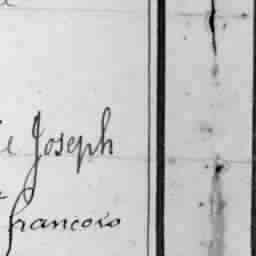 e Joseph
francois